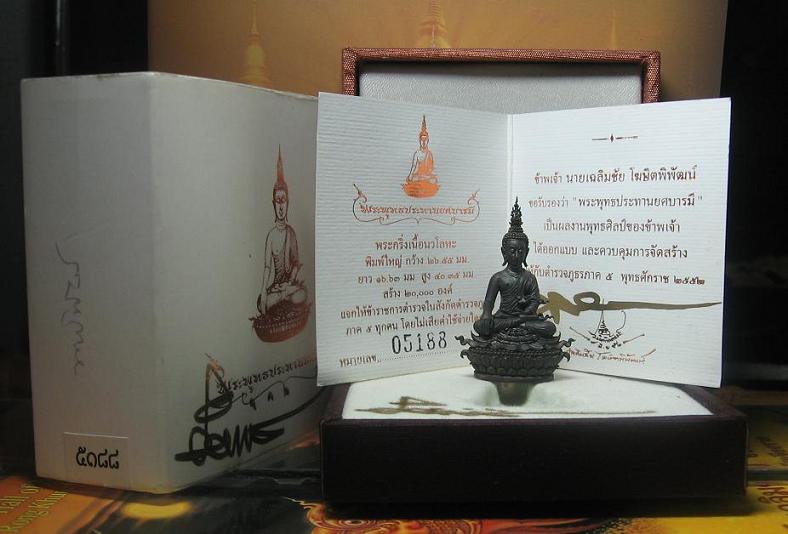 พระพุทธประทานยศบารมี
๕๑๘๘
พระพุทธประทานยศบารมี
พระกริ่งเนื้อนวโลหะ
พิมพ์ใหญ่ กว้าง ๒๖.๕๕ มม.
ยาว ๑๖.๖๓ มม. สูง ๔๐.๓๕ มม.
สร้าง ๒๐,๐๐๐ องค์
แจกให้ข้าราชการตำรวจในสังกัดตำรวจภู
ภาค ๕ ทุกคน โดยไม่เสียค่าใช้จ่ายใด
หมายเลข 05188
ข้าพเจ้า นายเฉลิมชัย โฆษิตพิพัฒน์
ขอรับรองว่า "พระพุทธประทานยศบารมี"
เป็นผลงานพุทธศิลป์ของข้าพเจ้า
ได้ออกแบบ และควบคุมการจัดสร้าง
ให้กับตำรวจภูธรภาค ๕ พุทธศักราช ๒๕๕๒
Hall of